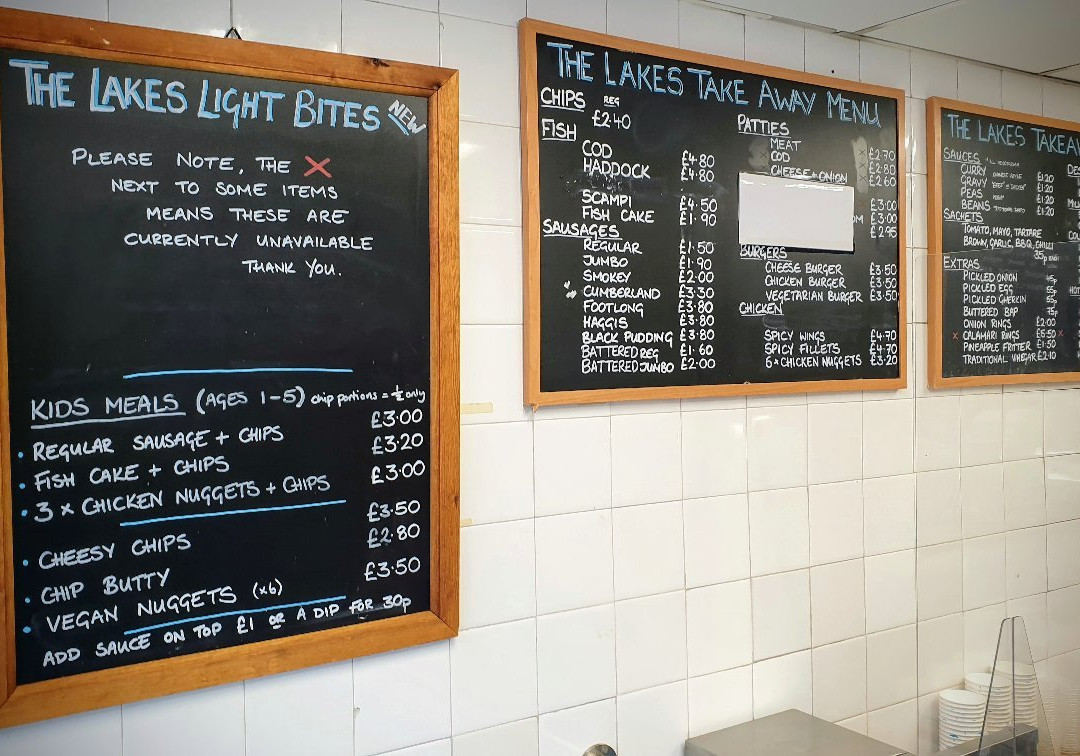 THE LAKES LIGHT BITES NEW
PLEASE NOTE, THE X
NEXT TO SOME ITEMS
MEANS THESE ARE
CURRENTLY UNAVAILABLE
THANK YOU.
KIDS MEALS (AGES 1-5) chip portions = ½ only
• REGULAR SAUSAGE + CHIPS £3.00
• FISH CAKE + CHIPS £3.20
• 3 x CHICKEN NUGGETS + CHIPS £3.00
• CHEESY CHIPS £3.50
• CHIP BUTTY £2.80
• VEGAN NUGGETS (x6) £3.50
ADD SAUCE ON TOP £1 OR A DIP FOR 30p
THE LAKES TAKE AWAY MENU
CHIPS REG
£2.40
FISH
COD £4.80
HADDOCK £4.80
SCAMPI £4.50
FISH CAKE £1.90
SAUSAGES
REGULAR £1.50
JUMBO £1.90
SMOKEY £2.00
CUMBERLAND £3.30
FOOTLONG £3.80
HAGGIS £3.80
BLACK PUDDING £3.80
BATTERED REG £1.60
BATTERED JUMBO £2.00
PATTIES
MEAT £2.70
COD £2.80
CHEESE + ONION £2.60
£3.00
OM £3.00
£2.95
BURGERS
CHEESE BURGER £3.50
CHICKEN BURGER £3.50
VEGETARIAN BURGER £3.50
CHICKEN
SPICY WINGS £4.70
SPICY FILLETS £4.70
6 x CHICKEN NUGGETS £3.20
THE LAKES TAKEAW
SAUCES
CURRY £1.20
GRAVY £1.20
PEAS £1.20
BEANS £1.20
SACHETS
TOMATO, MAYO, TARTARE
BROWN, GARLIC, BBQ, CHILLI
35p EACH
EXTRAS
PICKLED ONION 45p
PICKLED EGG 55p
PICKLED GHERKIN 55p
BUTTERED BAP 75p
ONION RINGS £2.00
X CALAMARI RINGS £5.50 X
PINEAPPLE FRITTER £1.50
TRADITIONAL VINEGAR £2.10